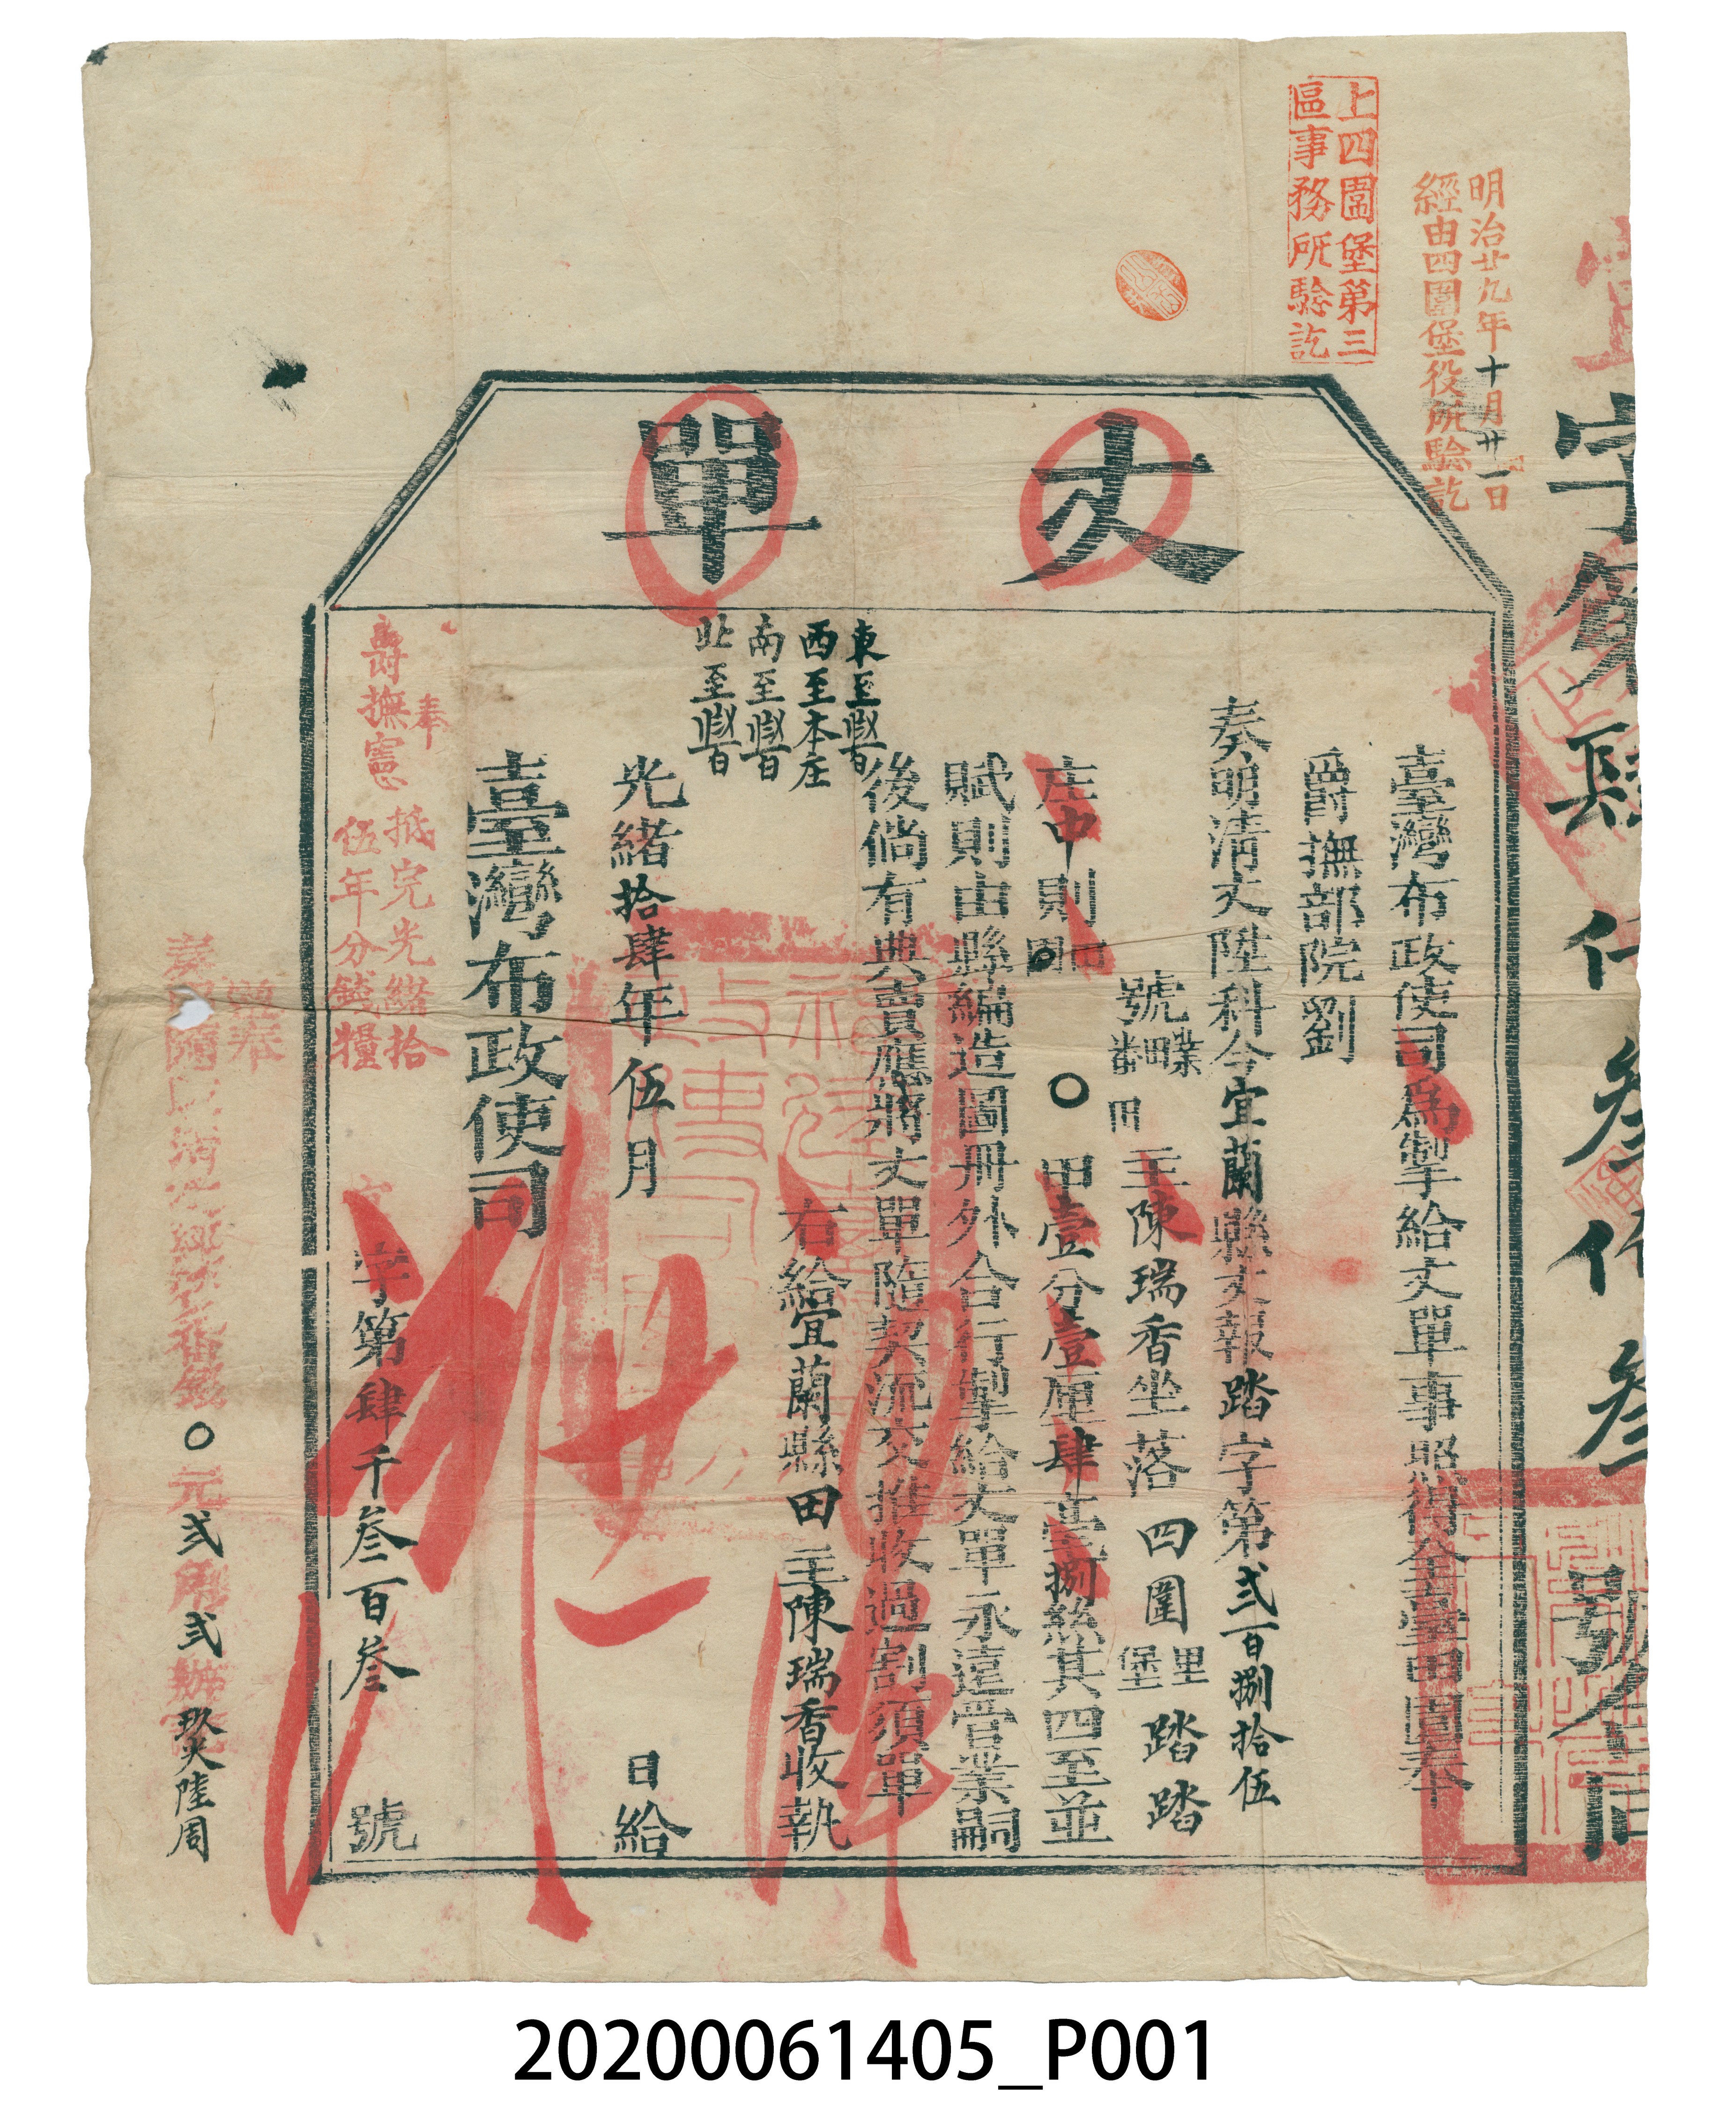 丈單
臺灣布政使司為掣給丈單事照得全臺田園奉
爵撫部院劉
奏明清丈陞科今宜蘭縣丈報踏字第弍百捌拾伍
號業田番田主陳瑞香坐落四圍里堡踏踏
庄中則田園〇甲壹分壹厘肆毫捌絲其四至並
賦則由縣編造圖冊外合行掣給丈單永遠管業嗣
後倘有典賣應將丈單隨契流交推收過割須單
右給宜蘭縣田主陳瑞香收執
東至
西至本庄
南至
北至
光緒拾肆年伍月 日給
臺灣布政使司
字第肆千叁百叁 號
奉
爵撫憲
抵完光緒拾
伍年分錢糧
〇元弍弍
上四圍堡第三
區事務所驗訖
明治廿九年十月廿一日
經由四圍堡役所驗訖
20200061405_P001